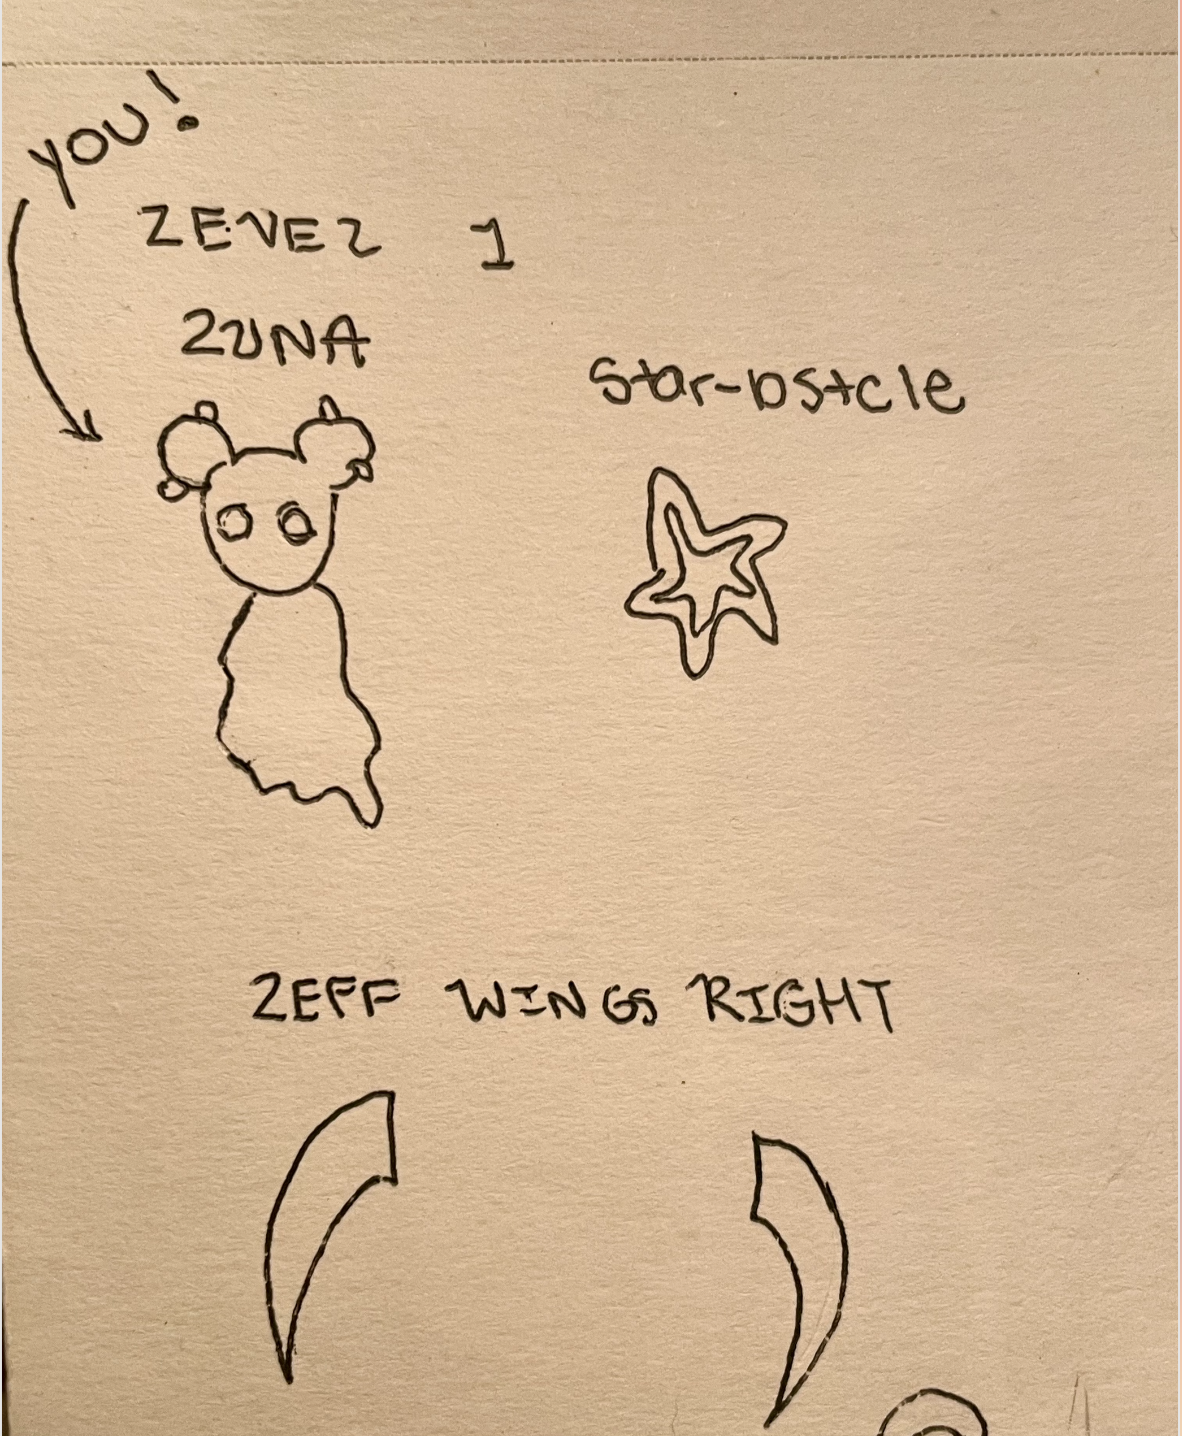 YOU!
ZEVEZ 1
ZUNA
Star-bstcle
ZEFF WINGS RIGHT